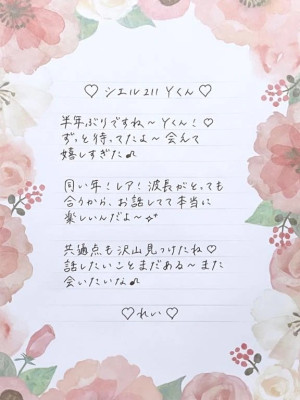 ♡ シエル211 Yくん ♡
半年ぶりですね、〜Yくん!♡
ずっと待ってたよ〜会えて
嬉しすぎた♪
同い年!レア!波長がとっても
合うから、お話してて本当に
楽しいんだよ〜✧
共通点も沢山見つけたね♡
話したいことまだある〜また
会いたいな♪
♡れい♡